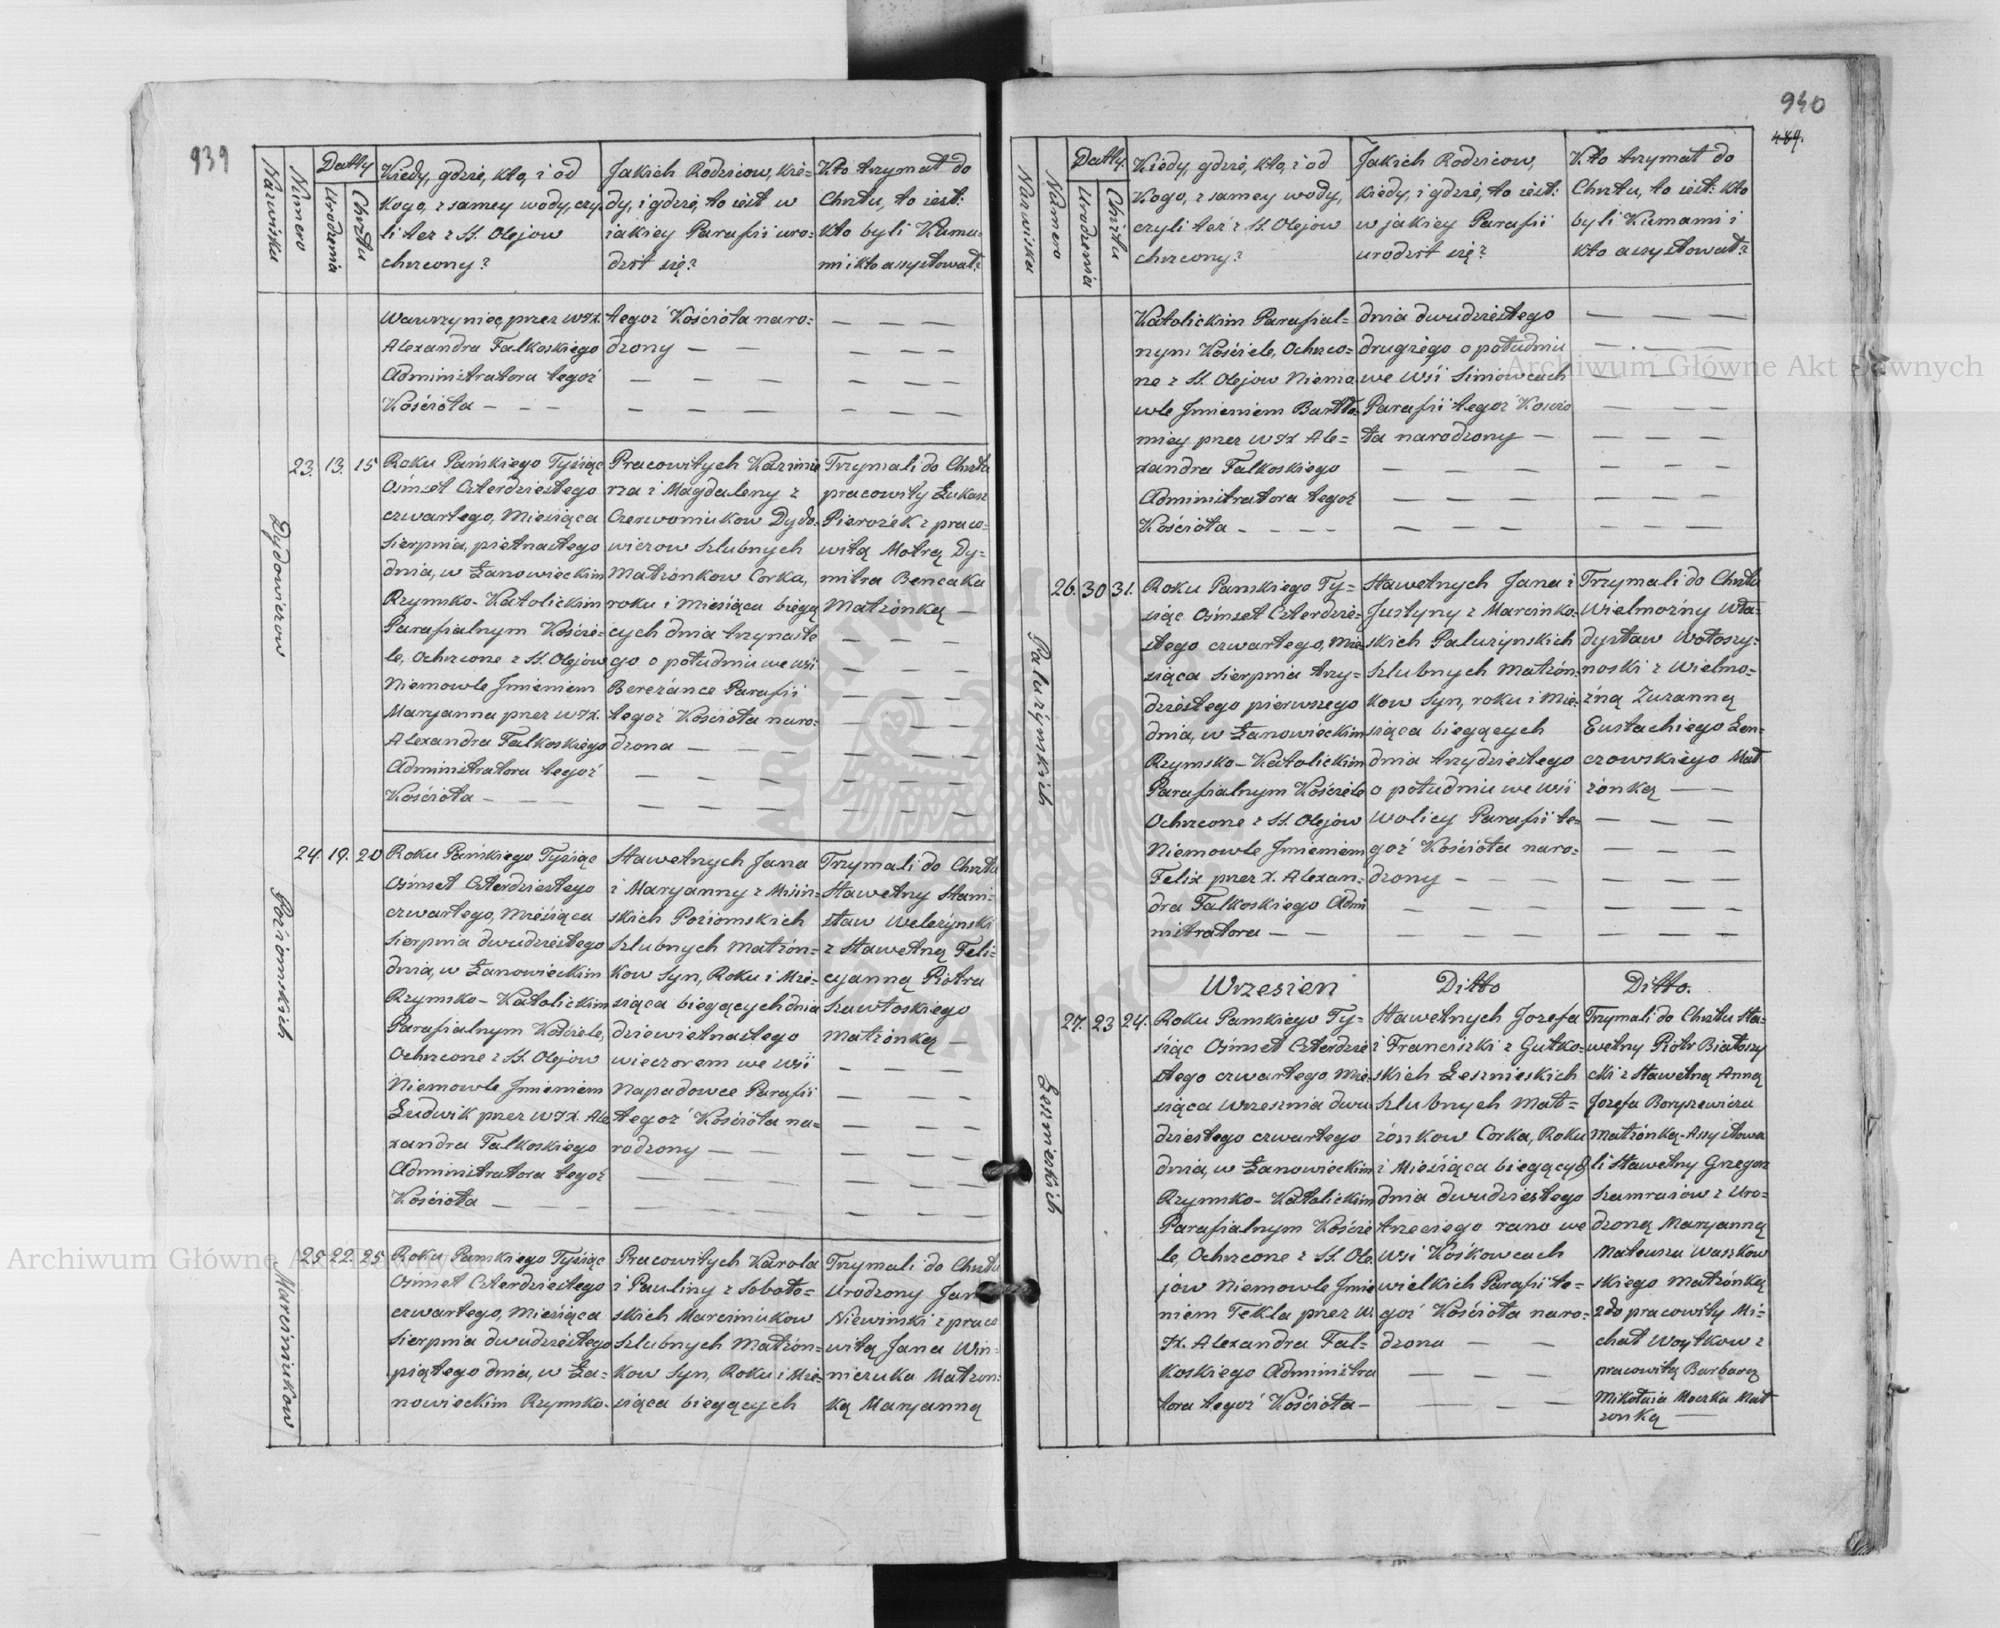 939
Nazwiska
Numero
Datty
Urodzenia
Chrztu
Kiedy, gdzie, kto, i od
Kogo, z samey wody, czy
li też z SS. Olejow
chrzcony?
Jakich Rodzicow, kie-
dy, i gdzie, to iest w
iakiey Parafii uro-
dził się?
Kto trzymał do
Chrztu, to iest:
kto byli Kuma-
mi i kto assystował?
Wawrzyniec, przez WJX.
Alexandra Falkoskiego
Administratora tegoż
Kościoła — — —
tegoż Kościoła naro-
dzony — —
Dydowiczow
23. 13. 15
Roku Pańskiego Tysiąc
Osmset Czterdziestego
czwartego, Miesiąca
Sierpnia, piętnastego
dnia, w Łanowieckim
Rzymsko-Katolickim
Parafialnym Koście-
le, Ochrzcone z SS. Olejow
Niemowle Jmieniem
Maryanna przez WJX.
Alexandra Falkoskiego
Administratora tegoż
Kościoła — — —
Pracowitych Kazimie
rza i Magdaleny z
Czerwoniukow Dydo-
wiczow szlubnych
Małżonkow Corka,
roku i Miesiąca bieżą
cych dnia trzynaste
go o południu we wsi
Bereżance Parafii
tegoż Kościoła naro-
dzona — — —
Trzymali do Chrztu
pracowity Łukasz
Pierożek z praco-
witą Motrą Dy-
mitra Bencaka
Małżonką —
Poziomskich
24. 19. 20
Roku Pańskiego Tysiąc
Osmset Czterdziestego
czwartego, Miesiąca
Sierpnia dwudziestego
dnia, w Łanowieckim
Rzymsko-Katolickim
Parafialnym Kościele,
Ochrzcone z SS. Olejow
Niemowle Jmieniem
Ludwik przez WJX. Ale
xandra Falkoskiego
Administratora tegoż
Kościoła —
Sławetnych Jana
i Maryanny z Misin-
skich Poziomskich
szlubnych Małżon-
kow Syn, Roku i Mie-
siąca bieżących dnia
dziewiętnastego
wieczorem we wsi
Napadowce Parafii
tegoż Kościoła na-
rodzony — —
Trzymali do Chrztu
Sławetny Stani-
sław Weleżynski
z Sławetną Feli-
cyanną Piotra
Szawłoskiego
Małżonką —
Marcimiukow
25. 22. 25
Roku Pańskiego Tysiąc
Osmset Czterdziestego
czwartego, Miesiąca
Sierpnia dwudziestego
piątego dnia, w Ła-
nowieckim Rzymsko-
Pracowitych Karola
i Pauliny z Soboto-
skich Marcimiukow
szlubnych Małżon-
kow Syn, Roku i Mie-
siąca bieżących
Trzymali do Chrztu
Urodzony Jan
Niewinski z praco
witą Jana Win-
niczuka Małżon-
ką Maryanną
940
489.
Nazwiska
Numero
Datty.
Urodzenia
Chrztu
Kiedy, gdzie, kto, i od
Kogo, z samey wody,
czyli też z SS. Olejow
chrzcony?
Jakich Rodzicow,
kiedy, i gdzie, to iest:
w jakiey Parafii
urodził się?
Kto trzymał do
Chrztu, to iest: kto
byli Kumami i
kto assystował?
Katolickim Parafial-
nym Kościele, Ochrzco-
ne z SS. Olejow Niemo
wle Jmieniem Bartło-
miey przez WJX Ale-
xandra Falkoskiego
Administratora tegoż
Kościoła — — —
dnia dwudziestego
drugiego o południu
we wsi Simowcach
Parafii tegoż Koscio
ła narodzony —
Paluzynskich
26. 30 31.
Roku Panskiego Ty-
siąc Osmset Czterdzie-
stego czwartego, Mie-
siąca Sierpnia trzy-
dziestego pierwszego
dnia, w Łanowieckim
Rzymsko-Katolickim
Parafialnym Kościele
Ochrzcone z SS. Olejow
Niemowle Jmieniem
Felix przez X. Alexan-
dra Falkoskiego Admi
nistratora — —
Sławetnych Jana i
Justyny z Marcinko-
skich Paluzynskich
szlubnych Małżon-
kow Syn, roku i Mie-
siąca bieżących
dnia trzydziestego
o południu we wsi
Wolicy Parafii te-
goż Kościoła naro-
dzony — — —
Trzymali do Chrztu
Wielmożny Wła-
dysław Wołoszy-
noski z Wielmo-
żną Zuzanną
Eustachiego Len-
czowskiego Mał
żonką — —
Wrzesien Ditto Ditto.
Lesznieskich
27. 23 24.
Roku Panskiego Ty-
siąc Osmset Czterdzie
stego czwartego, Mie-
siąca Wrzesnia dwu
dziestego czwartego
dnia, w Łanowieckim
Rzymsko-Katolickim
Parafialnym Koście
le, Ochrzcone z SS. Ole
jow Niemowle Jmie
niem Tekla przez W.
JX. Alexandra Fal-
koskiego Administra
tora tegoż Kościoła —
Sławetnych Jozefa
i Franciszki z Gutko-
skich Lesznieskich
szlubnych Mał-
żonkow Corka, Roku
i Miesiąca bieżący
dnia dwudziestego
trzeciego rano we
wsi Kośkowcach
wielkich Parafii te-
goż Kościoła naro-
dzona — —
Trzymali do Chrztu Sła-
wetny Piotr Białoszy
cki z Sławetną Anną
Jozefa Boryszewicza
Małżonką. Assystowa
li Sławetny Grzegorz
Szamraiow z Uro-
dzoną Maryanną
Mateusza Waszkow
skiego Małżonką
2do pracowity Mi-
chał Woytkow z
pracowitą Barbarą
Mikołaia Moczka Mał
zonką —
Archiwum Główne Akt Dawnych
Archiwum Główne Akt Dawnych